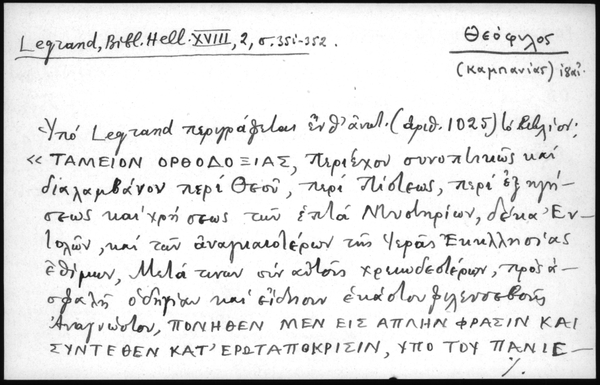 Legrand, Bibl. Hell. XVIII, 2, σ. 351-352.
Θεόφιλος
(Καμπανίας)
Ὑπό Legrand περιγράφεται ἐνθ' ἀνωτ. (ἀριθ. 1025) τό βιβλίον:
« ΤΑΜΕΙΟΝ ΟΡΘΟΔΟΞΙΑΣ, Περιέχον συνοπτικῶς καί
διαλαμβάνον περί Θεοῦ, περί Πίστεως, περί ἐξηγή-
σεως καί χρήσεως τῶν ἑπτά Μυστηρίων, δέκα Ἐν-
τολῶν, καί τῶν ἀναγκαιοτέρων τῆς Ἱερᾶς Ἐκκλησίας
ἐθίμων, Μετά τινων σύν αὐτοῖς χρειωδεστέρων, πρός ἀ-
σφαλῆ ὁδηγίαν καί εἴδησιν ἑκάστου φιλευσεβοῦς
Ἀναγνώστου, ΠΟΝΗΘΕΝ ΜΕΝ ΕΙΣ ΑΠΛΗΝ ΦΡΑΣΙΝ ΚΑΙ
ΣΥΝΤΕΘΕΝ ΚΑΤ' ΕΡΩΤΑΠΟΚΡΙΣΙΝ, ΥΠΟ ΤΟΥ ΠΑΝΙΕ-
./.